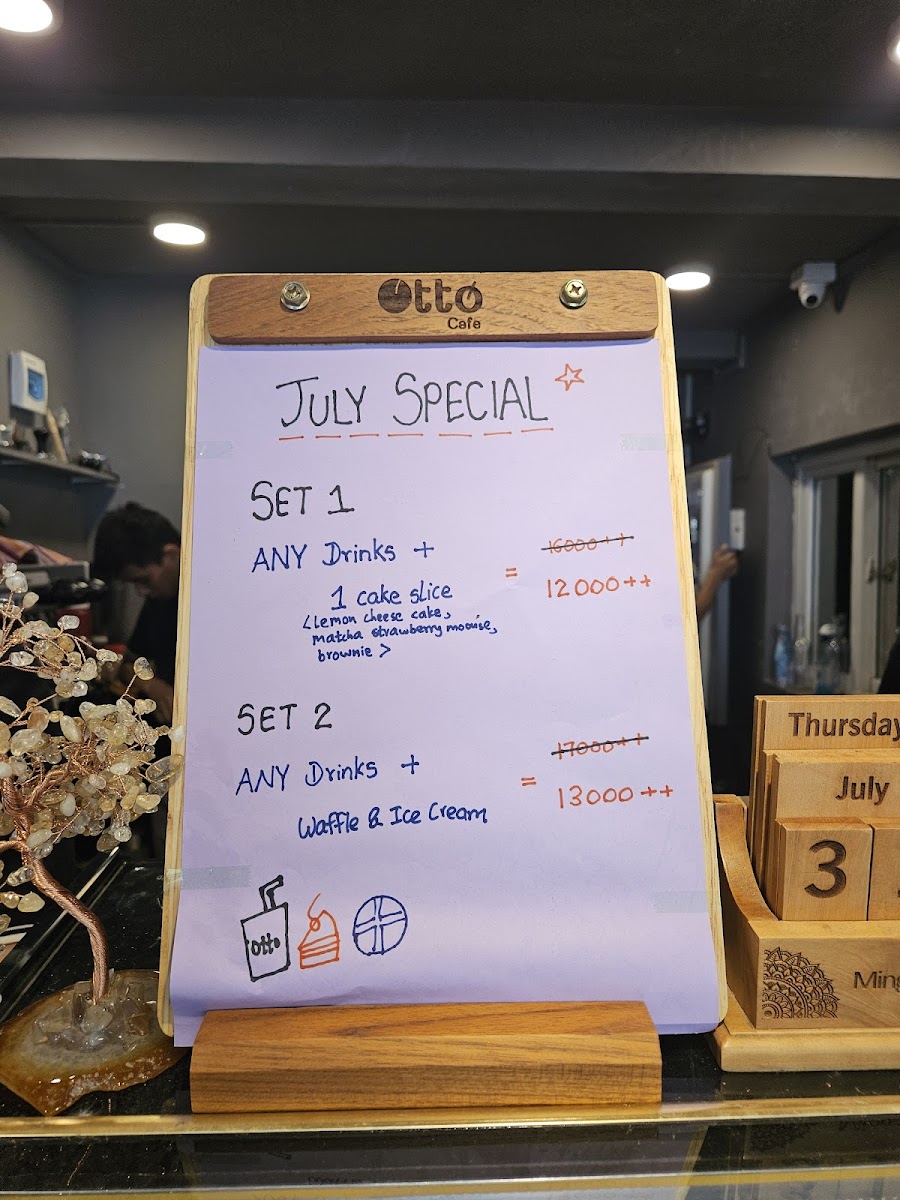 Otto
Cafe
JULY SPECIAL
SET 1
ANY Drinks +
1 cake slice
<lemon cheese cake,
matcha strawberry moouse,
brownie >
= 16000++
12000++
SET 2
ANY Drinks +
Waffle & Ice Cream
= 17000++
13000++
otto
Thursday
July
3